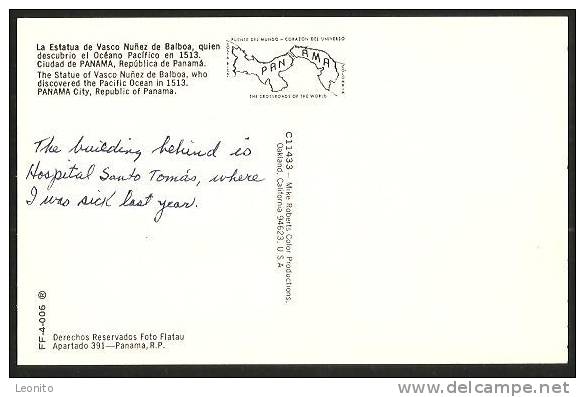 La Estatua de Vasco Nuñez de Balboa, quien
descubrio el Océano Pacífico en 1513.
Ciudad de PANAMA, República de Panamá.
The Statue of Vasco Nuñez de Balboa, who
discovered the Pacific Ocean in 1513.
PANAMA City, Republic of Panama.
PUENTE DEL MUNDO - CORAZON DEL UNIVERSO
PAN AMA
THE CROSSROADS OF THE WORLD
The building behind is
Hospital Santo Tomás, where
I was sick last year.
C11433 — Mike Roberts Color Productions.
Oakland, California 94623. U.S.A
FF-4-006 ®
Derechos Reservados Foto Flatau
Apartado 391—Panama, R.P.
Leonito
www.delcampe.net